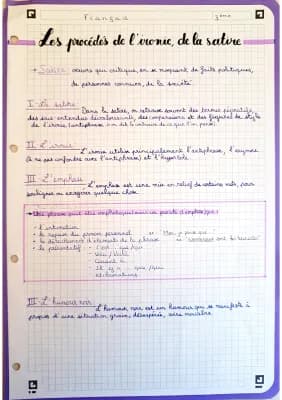 Français 3ème
Les procédés de l'ironie, de la satire
→ Satire : œuvre qui critique, en se moquant de faits politiques,
de personnes connues, de la société
I - La satire
Dans la satire, on retrouve souvent des termes péjoratifs,
des sous-entendus dévalorisants, des comparaisons et des figures de style
de l'ironie (antiphrase : on dit le contraire de ce que l'on pense).
II - L'ironie
L'ironie utilise principalement l'antiphrase, l'oxymore
(à ne pas confondre avec l'antiphrase) et l'hyperbole.
III - L'emphase
L'emphase est une mise en relief de certains mots, pour
souligner ou exagérer quelque chose
Une phrase peut être emphatique (mise en procédé d'emphase) par :
- l'intonation
- la reprise du pronom personnel → Moi, je pense que
- le détachement d'éléments de la phrase →
- les présentatifs - C'est... qui/que
- Voici / Voilà
- Quant à
- Il y a... qui/que
IV - L'humour noir
L'humour noir est un humour qui se manifeste à
propos d'une situation grave, désespérée, voire macabre.